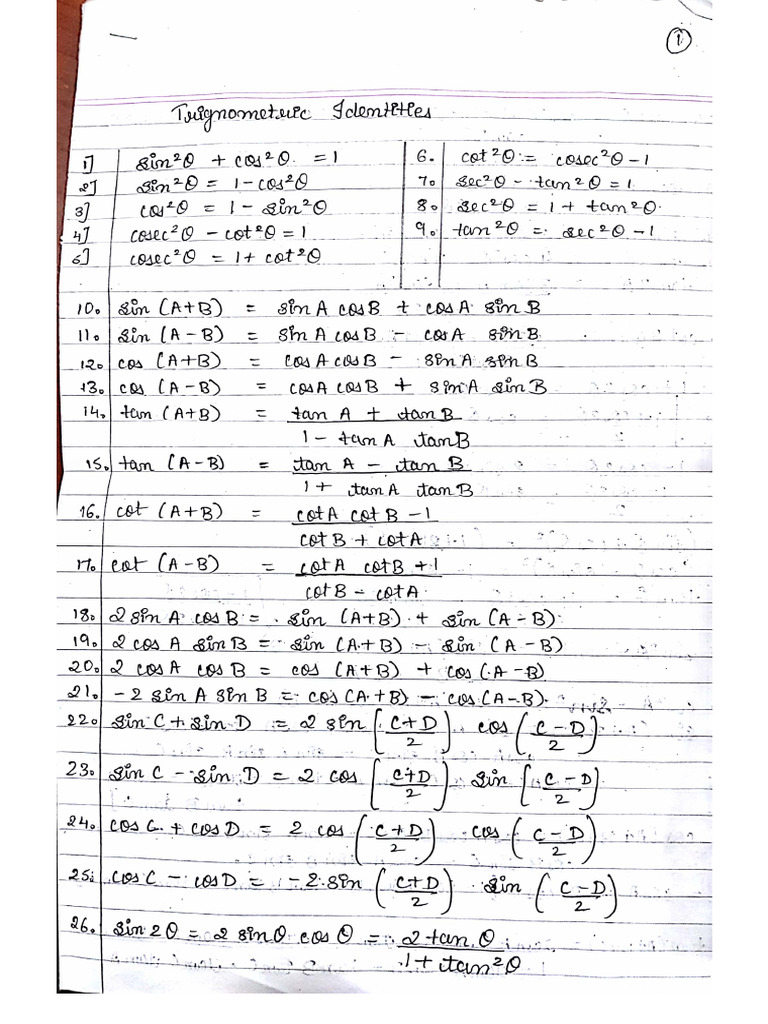 1
Trignometric Identities
1] sin²θ + cos²θ = 1
2] sin²θ = 1 - cos²θ
3] cos²θ = 1 - sin²θ
4] cosec²θ - cot²θ = 1
5] cosec²θ = 1 + cot²θ
6. cot²θ = cosec²θ - 1
7. sec²θ - tan²θ = 1
8. sec²θ = 1 + tan²θ
9. tan²θ = sec²θ - 1
10. sin (A+B) = sin A cos B + cos A sin B
11. sin (A - B) = sin A cos B - cos A sin B
12. cos (A+B) = cos A cos B - sin A sin B
13. cos (A - B) = cos A cos B + sin A sin B
14. tan (A+B) = tan A + tan B
1 - tan A tan B
15. tan (A - B) = tan A - tan B
1 + tan A tan B
16. cot (A+B) = cot A cot B - 1
cot B + cot A
17. cot (A - B) = cot A cot B + 1
cot B - cot A
18. 2 sin A cos B = sin (A+B) + sin (A - B)
19. 2 cos A sin B = sin (A+B) - sin (A - B)
20. 2 cos A cos B = cos (A+B) + cos (A - B)
21. -2 sin A sin B = cos (A+B) - cos (A - B)
22. sin C + sin D = 2 sin (C+D/2) cos (C-D/2)
23. sin C - sin D = 2 cos (C+D/2) sin (C-D/2)
24. cos C + cos D = 2 cos (C+D/2) cos (C-D/2)
25. cos C - cos D = -2 sin (C+D/2) sin (C-D/2)
26. sin 2θ = 2 sin θ cos θ = 2 tan θ
1 + tan²θ